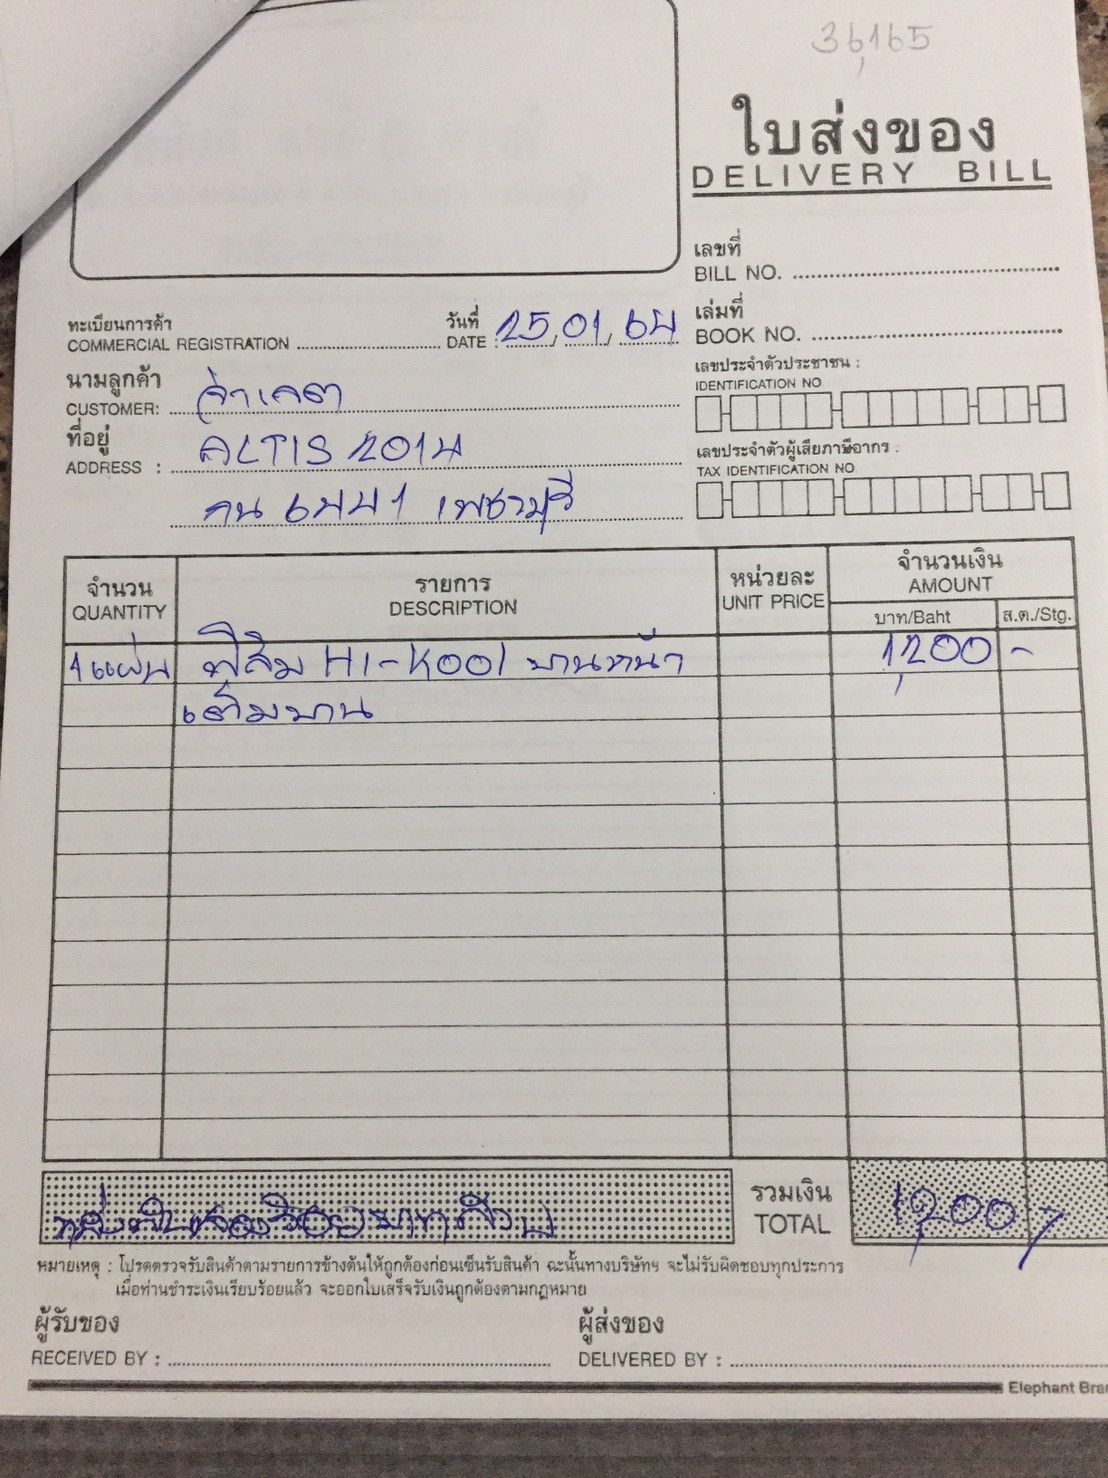 36,165
ใบส่งของ
DELIVERY BILL
เลขที่
BILL NO.
ทะเบียนการค้า
COMMERCIAL REGISTRATION
วันที่ 25,01,64
DATE :
เล่มที่
BOOK NO.
นามลูกค้า
CUSTOMER: จ่าเดช
เลขประจำตัวประชาชน :
IDENTIFICATION NO
ที่อยู่ ALTIS 2014
ADDRESS :
เลขประจำตัวผู้เสียภาษีอากร :
TAX IDENTIFICATION NO
กน 6441 เพชรบุรี
จำนวน รายการ หน่วยละ จำนวนเงิน
QUANTITY DESCRIPTION UNIT PRICE AMOUNT
บาท/Baht ส.ต./Stg.
1 แผ่น ฟิล์ม HI-KOOL บานหน้า 1,200 -
เต็มบาน
หนึ่งพันสองร้อยบาทถ้วน รวมเงิน 1,200
TOTAL
หมายเหตุ : โปรดตรวจรับสินค้าตามรายการข้างต้นให้ถูกต้องก่อนเซ็นรับสินค้า ฉะนั้นทางบริษัทฯ จะไม่รับผิดชอบทุกประการ
เมื่อท่านชำระเงินเรียบร้อยแล้ว จะออกใบเสร็จรับเงินถูกต้องตามกฎหมาย
ผู้รับของ ผู้ส่งของ
RECEIVED BY : DELIVERED BY :
Elephant Bra